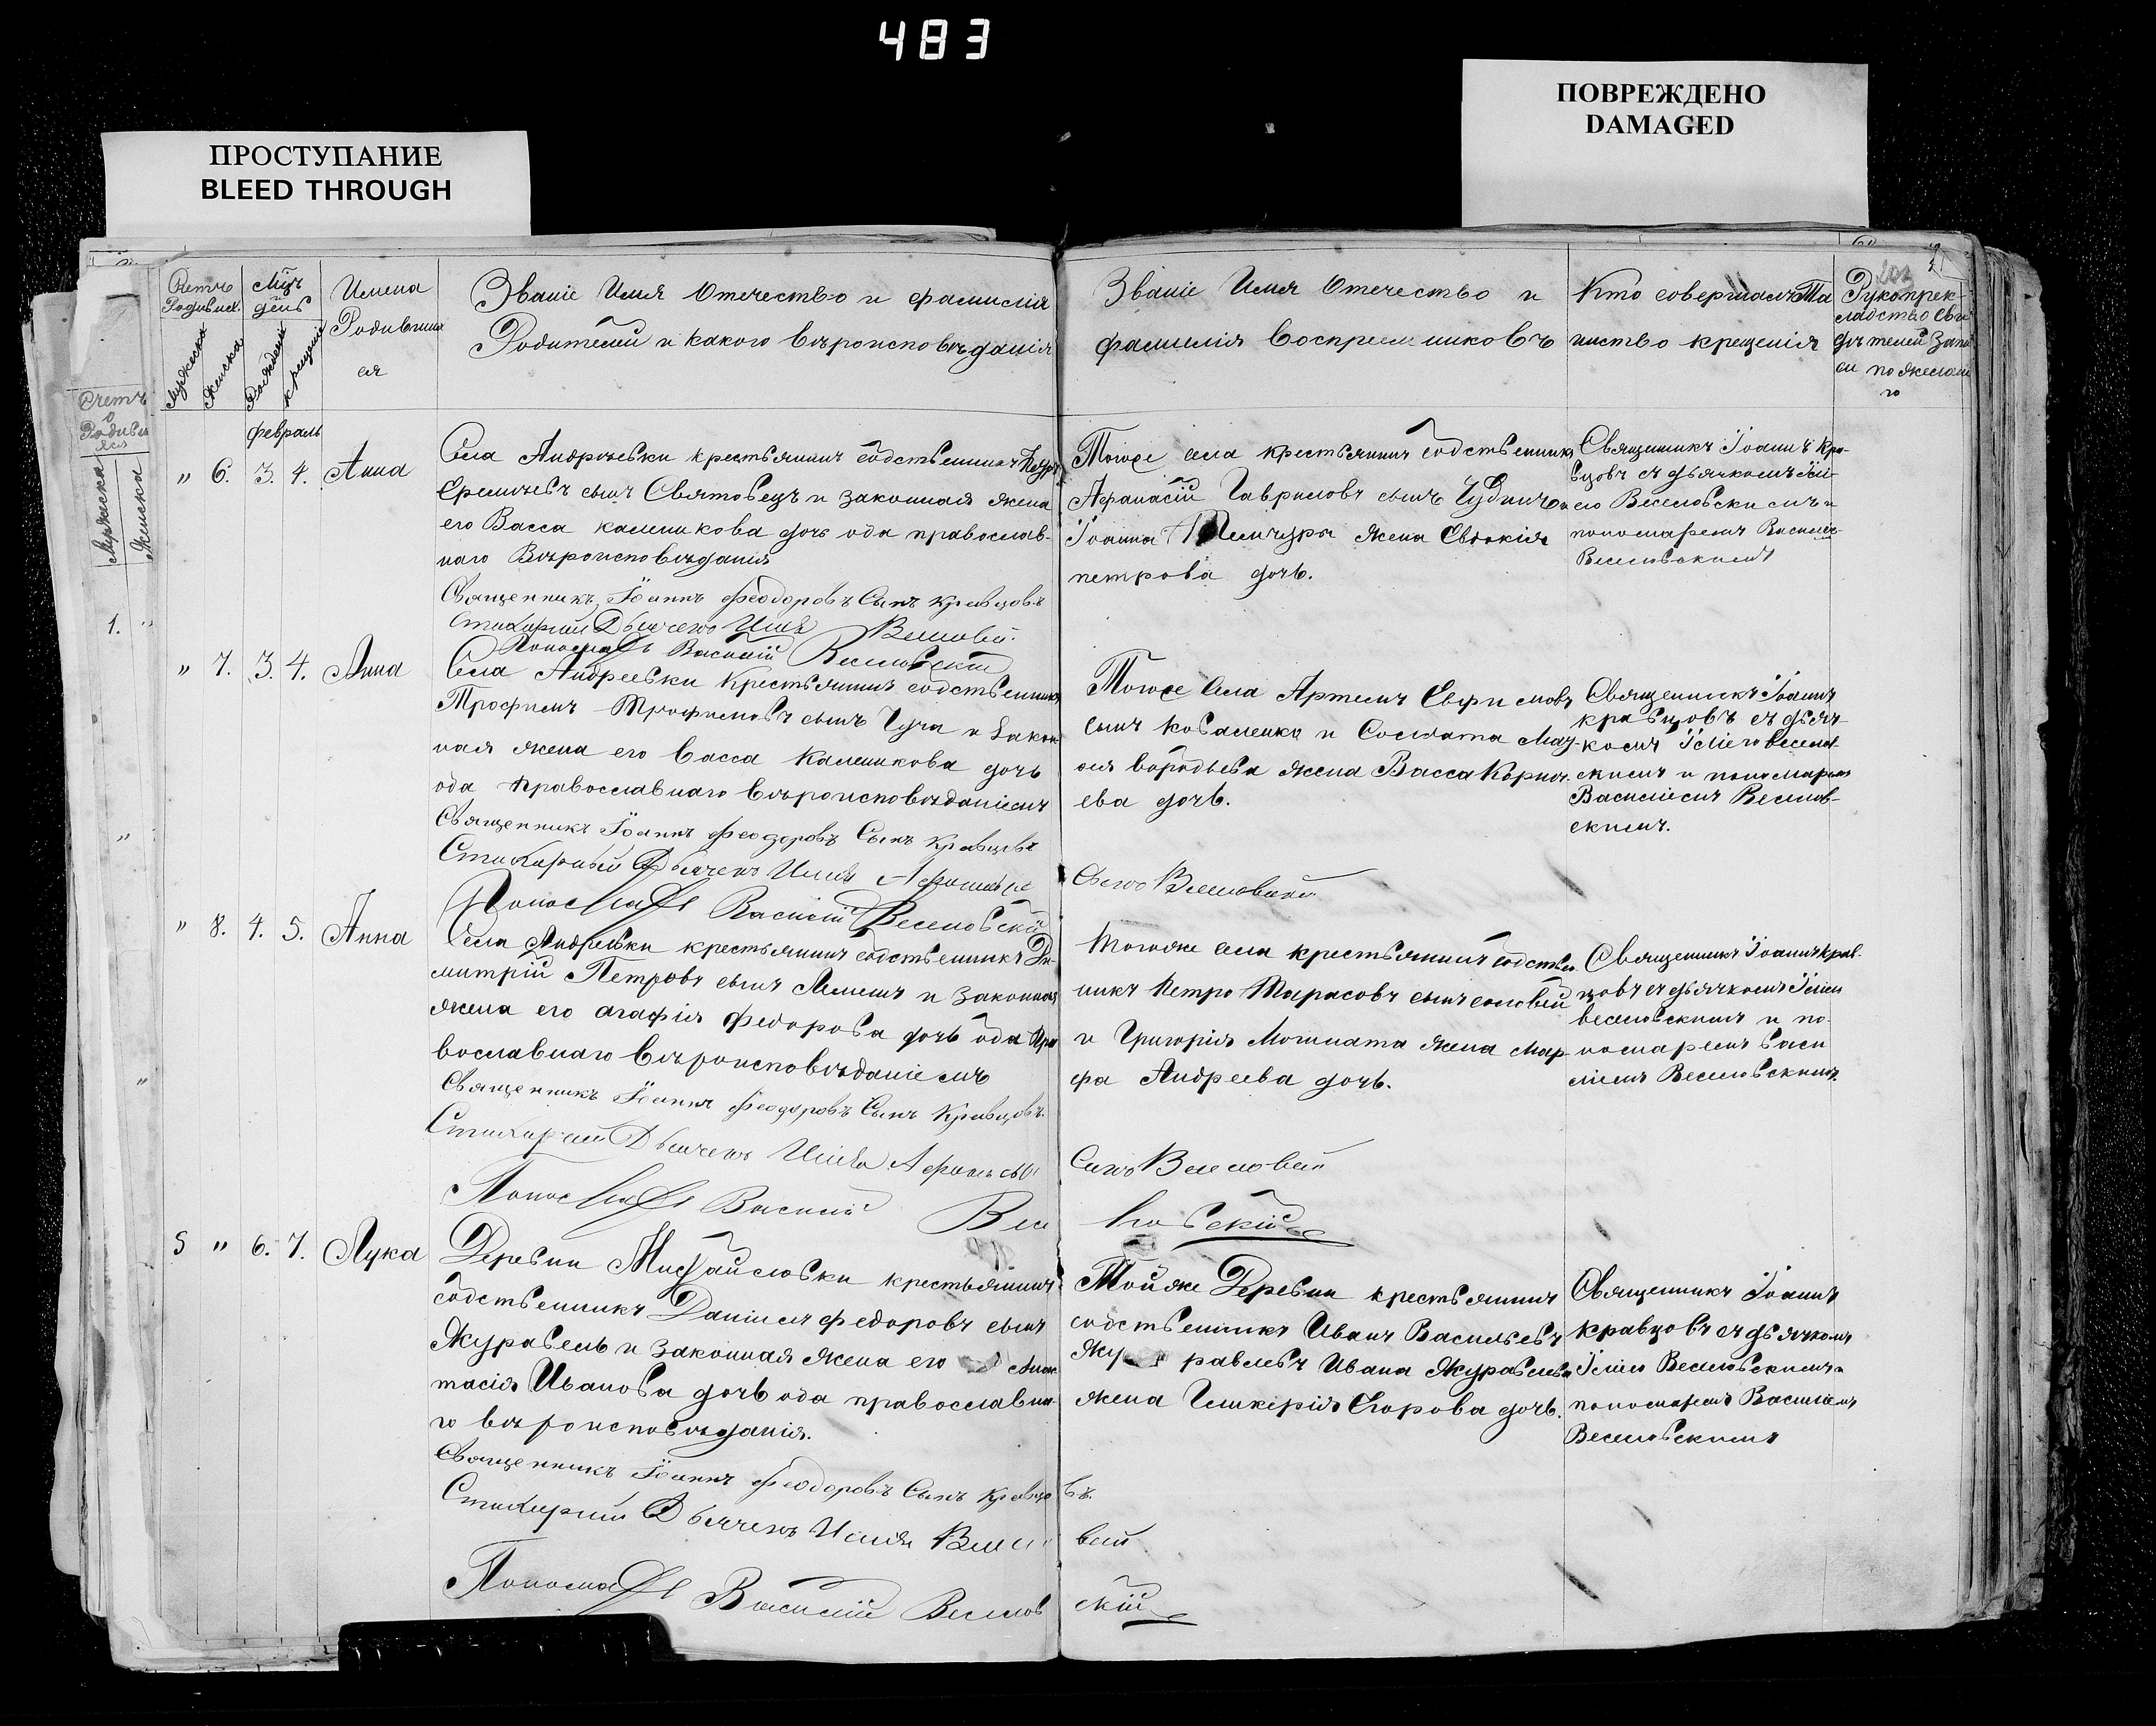 483
ПРОСТУПАНИЕ
BLEED THROUGH
ПОВРЕЖДЕНО
DAMAGED
Счетъ
Родивших.
Мужеска
Женска
Мцъ
день
Рожденія
крещенія
Имена
Родивших
ся
Званіе Имя Отечество и фамилія
Родителей и какого вѣроисповѣданія
Званіе Имя Отечество и
фамилія воспреемниковъ
Кто совершалъ Та
инство крещенія
Рукоприк-
ладство сви
дѣтелей запи
си по желан
ію
Счетъ
о
Родивш
яся
Мужеска
Женска
1. "
февраль
" 6. 3. 4. Анна
Села Андреевки крестьянинъ собственникъ
Еремѣевъ сынъ Святовецъ и законная жена
его Васса калиникова дочь оба православ-
наго Вѣроисповѣданія
Священникъ Іоаннъ Феодоровъ Сынъ Кравцовъ
Стихарный Дьячекъ Илія
Пономарь Василій Веселовскій
Тогоже села крестьянинъ собственникъ
Афанасій Гавриловъ сынъ
Іоанна жена Евдокія
петрова дочь.
Священникъ Іоаннъ Кра-
вцовъ съ дьячкомъ Илі-
ею Веселовскимъ и
пономаремъ Василіе
Веселовскимъ
" 7. 3. 4. Анна
Села Андреевки крестьянинъ собственникъ
Трофимъ Трофимовъ сынъ и Закон
ная жена его Васса Калиникова дочь
оба Православнаго Вѣроисповѣданіемъ
Священникъ Іоаннъ Феодоровъ Сынъ Кравцовъ
Стихарный Дьячекъ Илія
Сынъ
Пономарь Василій Веселовскій
Тогоже Села Артемъ Евфимовъ
сынъ Коваленко и Солдата
жена Васса Корни
ева дочь.
Священникъ Іоаннъ
кравцовъ съ дьяч-
комъ Иліею Веселов-
скимъ и пономаремъ
Василіемъ Веселов-
скимъ.
" 8. 4. 5. Анна
Села Андреевки крестьянинъ собственникъ Ди-
митрій Петровъ сынъ и Законная
жена его агафія федорова дочь оба Пра
вославнаго Вѣроисповѣданіемъ
Священникъ Іоаннъ Феодоровъ Сынъ Кравцовъ.
Стихарный Дьячекъ Илія
Сынъ
Пономарь Василій Весе
ловскій
Тогоже села крестьянинъ собствен
никъ Петро Тарасовъ сынъ соловей
и Григорія жена Мар
фа Андреева дочь.
Священникъ Іоаннъ Крав-
цовъ съ дьячкомъ Иліею
Веселовскимъ и по-
номаремъ Васи
ліемъ Веселовскимъ.
5 " 6. 7. Лука
Деревни Михайловки крестьянинъ
собственникъ Даніилъ Федоровъ сынъ
Журавель и Законная жена его Анас
тасія Иванова дочь оба православна-
го вѣроисповѣданія.
Священникъ Іоаннъ Феодоровъ Сынъ Кравцо
въ.
Стихарный Дьячекъ Илія
Пономарь Василій Веселов
скій
Тойже Деревни крестьянинъ
собственникъ Иванъ Васильевъ
Жу равлевъ Ивана Журавлева
жена Егорова дочь.
Священникъ Іоаннъ
кравцовъ съ дьячкомъ
Иліею Веселовскимъ и
пономаремъ Василіемъ
Веселовскимъ